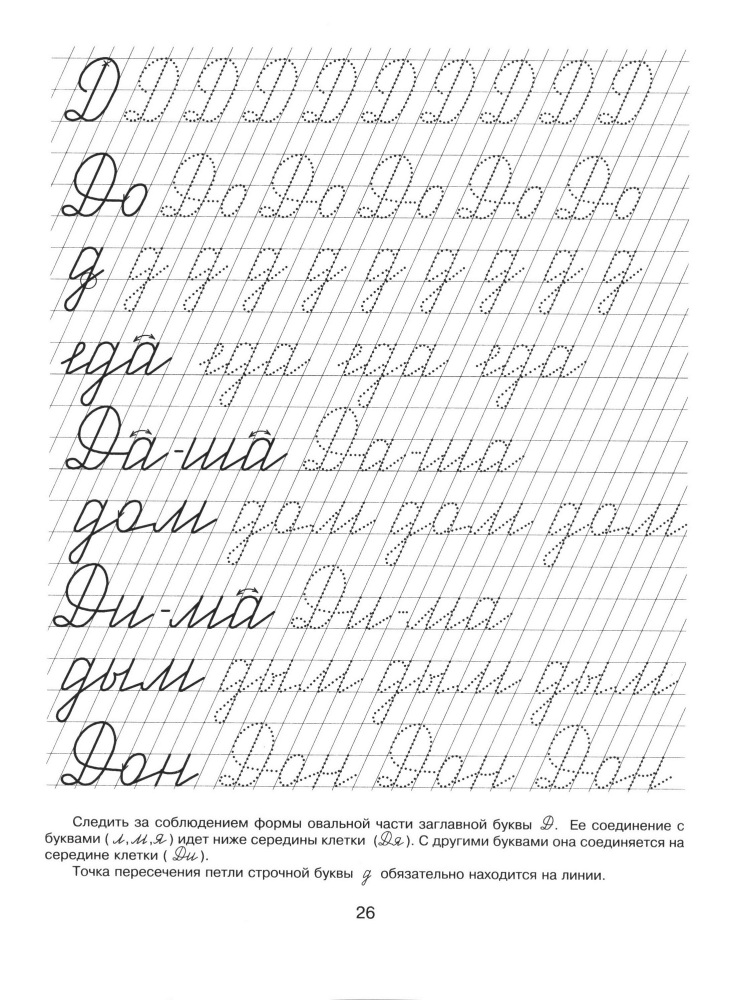 Д Д Д Д Д Д Д Д Д Д
До До До До До До
д д д д д д д д д д
еда еда еда еда
Да-ша Да-ша
дом дом дом дом
Ди-ма Ди-ма
дым дым дым дым
Дон Дон Дон Дон
Следить за соблюдением формы овальной части заглавной буквы Д. Ее соединение с
буквами (л,м,я) идет ниже середины клетки (Дя). С другими буквами она соединяется на
середине клетки (Ди).
Точка пересечения петли строчной буквы д обязательно находится на линии.
26